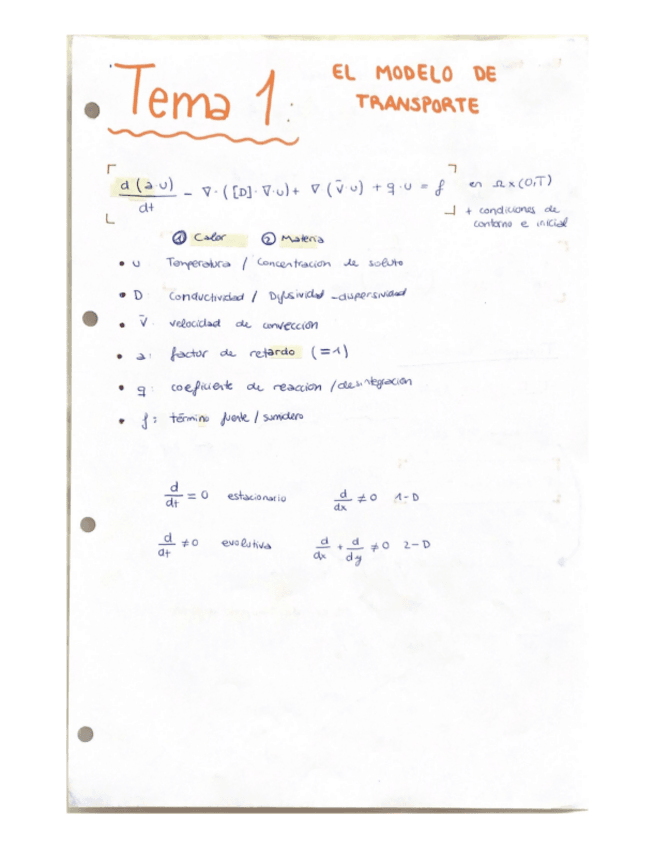 Tema 1:
EL MODELO DE
TRANSPORTE
d(a·u)/dt - ∇·([D]·∇·u) + ∇(v̄·u) + q·u = f en Ω×(0,T)
+ condiciones de
contorno e inicial
① Calor ② Materia
• u Temperatura / Concentración de soluto
• D: Conductividad / Difusividad - dispersividad
• v̄: velocidad de convección
• a: factor de retardo (=1)
• q: coeficiente de reacción / desintegración
• f: término fuente / sumidero
d/dt = 0 estacionario d/dx ≠ 0 1-D
d/dt ≠ 0 evolutiva d/dx + d/dy ≠ 0 2-D